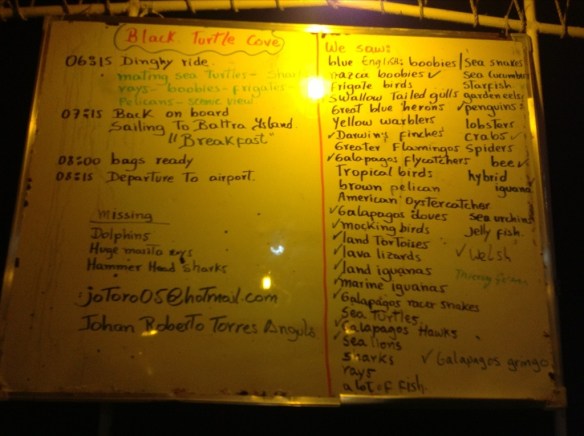 Black Turtle Cove
06:15 Dinghy ride.
mating sea Turtles - sharks
rays - boobies - frigates -
Pelicans - scenic view
07:15 Back on board
Sailing To Baltra Island.
"Breakfast"
08:00 bags ready
08:15 Departure To airport.
Missing
Dolphins
Huge manta rays
Hammer Head sharks
joToro05@hotmail.com
Johan Roberto Torres Angulo
We saw:
blue English boobies
nazca boobies ✓
frigate birds
Swallow Tailed gulls
Great blue herons
Yellow warblers
✓ Darwin's finches
Greater Flamingos
✓ Galapagos flycatchers
Tropical birds
brown pelican
American Oystercatcher
✓ Galapagos doves
✓ mocking birds
✓ land Tortoises
✓ lava lizards
✓ land iguanas
✓ marine iguanas
✓ Galapagos racer snakes
Sea Turtles
✓ Galapagos Hawks
✓ sea lions
sharks
rays
a lot of fish
Sea snakes
Sea cucumber
Starfish
garden eels
✓ penguins
lobsters
crabs ✓
spiders
bee ✓
hybrid
iguana
Sea urchins
Jelly fish.
✓ Welsh
✓ Galapagos gringo